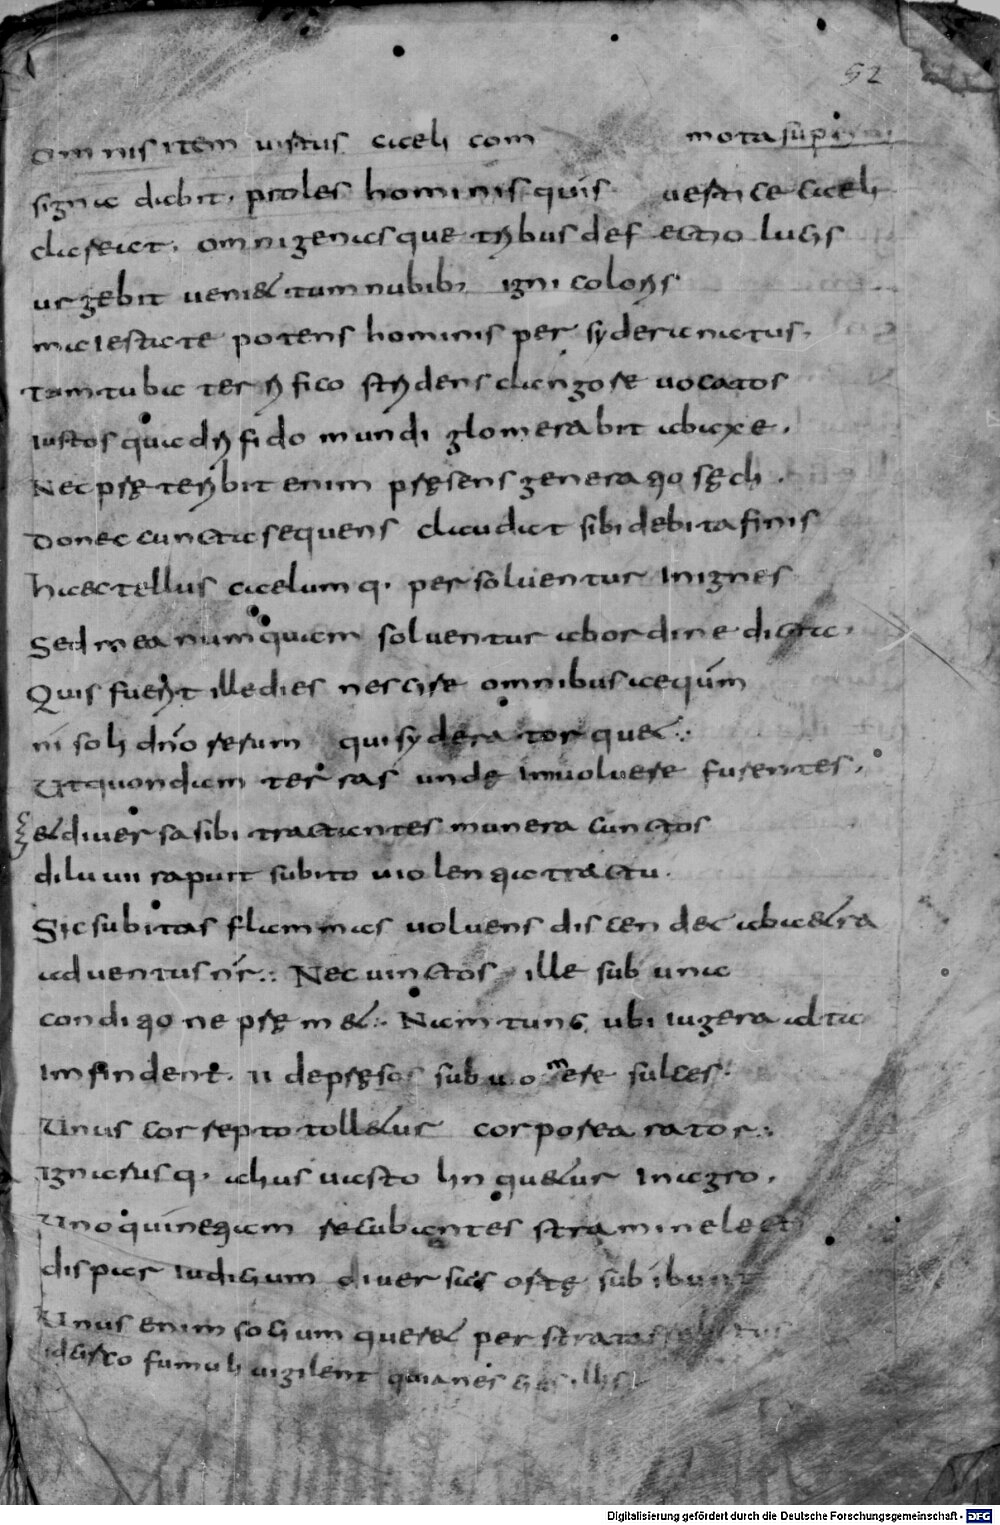 52
omnis item uirtus caeli com mota supinni
signa dabit. proles hominis quis uertice caeli
clareat. omnigenasque tribus defectio lucis
urgebit ueniet tum nubib; igni coloris
maiestate potens hominis per sydera natus.
tam tuba terrifico stridens clangore uocatos
iustos quadrifido mundi glomerabit ab axe.
Nec pręteribit enim pręsens generatio sęcli.
Donec cuncta sequens claudat sibi debita finis
haec tellus caelumq. persoluentur in ignes
Sed mea numquam soluentur ab ordine dicta.
Quis fuerit ille dies nescire omnibus aequum
ni soli dno rerum qui sydera torquet:.
Ut quondam terras undę inuoluere furentes.
& diuersa sibi tractantes munera cunctos
diluuii rapuit subito uiolentia tractu.
Sic subitas flammas uoluens discendet ab aethra
aduentus nr:. Nec uinctos ille sub una
conditione premet:. Nam tunc ubi iugera
imfindent. ii depręsso sub uomere sulces.
Unus correpto tolletur corpore arator:.
ignarusq. alius uasto linquetur in agro.
Uno quin etiam recubantes stramine
dispar iudicium diuersas
Unus enim socium queret per strata
idcirco fumuli uigilent quia
Digitalisierung gefördert durch die Deutsche Forschungsgemeinschaft - DFG